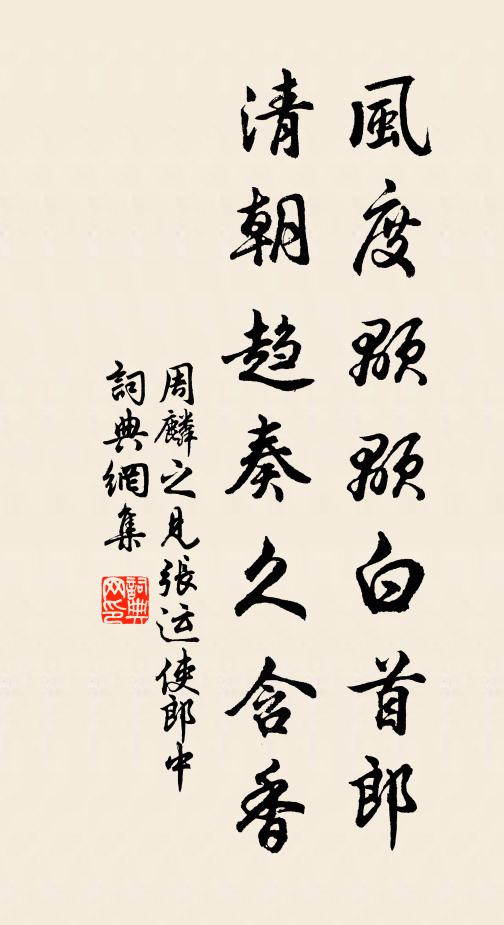 風度顒顒白首郎
清朝趋奏久含香
周麟之見張运使郎中
詞典網集
詞典網印